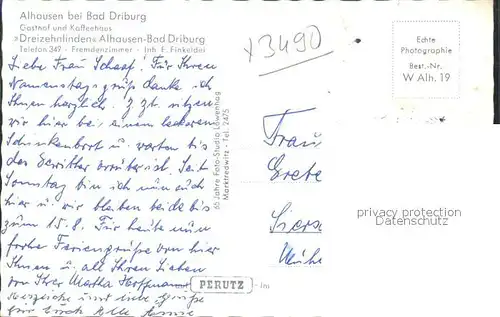 Alhausen bei Bad Driburg
Gasthof und Kaffeehaus
»Dreizehnlinden« Alhausen-Bad Driburg
Telefon 347 - Fremdenzimmer - Inh. E. Finkeldei
3490
Echte
Photographie
Best.-Nr.
W Alh. 19
Liebe Frau Schaaf! Für Ihren
Namenstagsgruß danke ich
Ihnen herzlich. Z. Zt. sitzen
wir hier bei einem leckeren
Schinkenbrot u. warten bis
das Gewitter vorüber ist. Seit
Sonntag bin ich nun auch
hier u. wir bleiben beide bis
zum 15.8. Für heute nun
frohe Feriengrüße von hier
Ihnen u. all Ihren Lieben
von Ihrer Martha Hoffmann
Herzliche und liebe Grüße
für Euch Alle
65 Jahre Foto-Studio Löwenhag
Marktredwitz - Tel. 2475
Frau
Grete
privacy protection
Datenschutz
PERUTZ - Im